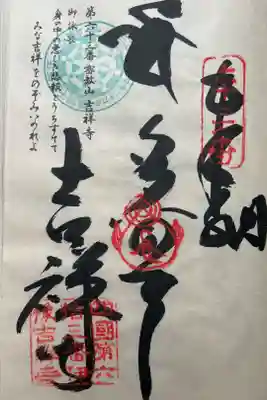 奉納
第六十三番 密教山 吉祥寺
御詠歌
身の中の悪しき悲報をうちすてて
みな吉祥をのぞみいのれよ
吉祥寺
四國第六
拾三番伊
豫吉祥寺